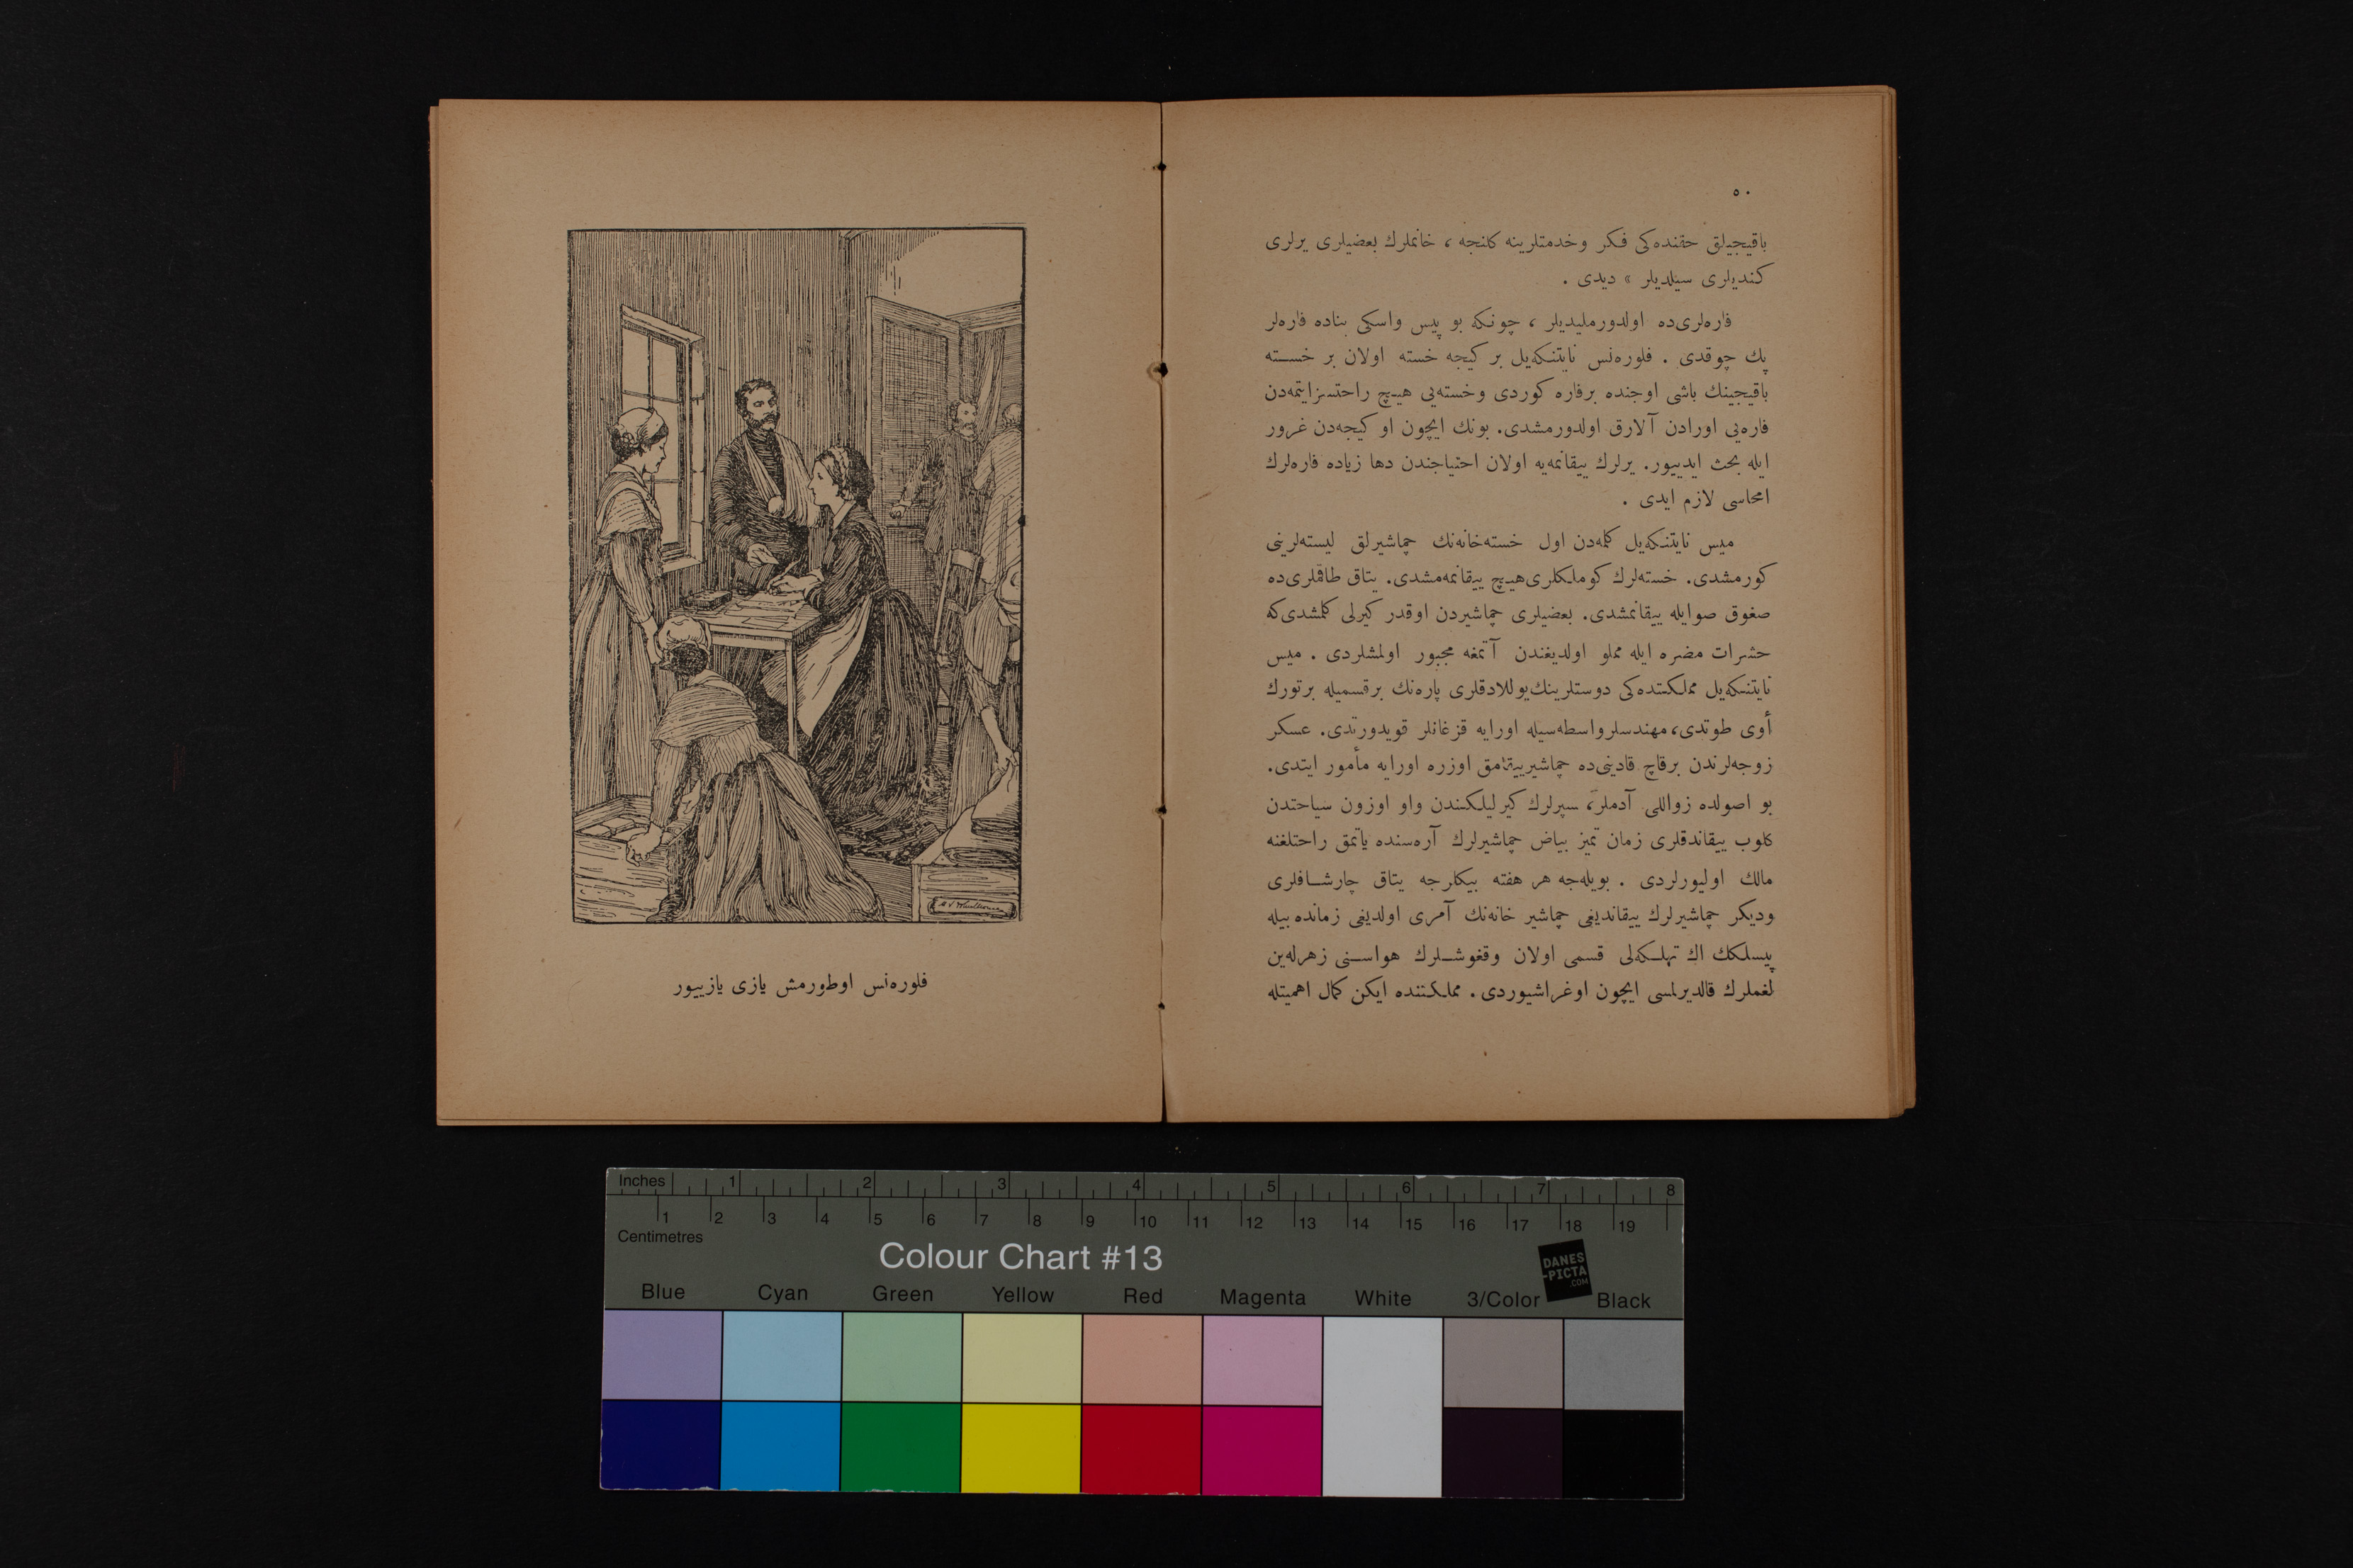 ٥٠
باقيجيلق حقنده‌كی فكر وخدمتلرينه كلنجه ، خانملرك بعضيلری يرلری
كنديلری سيلديلر » ديدی .
فاره‌لری‌ده اولدورمليديلر ، چونكه بو پيس واسكی بناده فاره‌لر
پك چوقدی . فلوره‌نس نايتنكه‌يل بر كيجه خسته اولان بر خسته
باقيجينك باشی اوجنده برفاره كوردی وخسته‌يی هيچ راحتسزايتمه‌دن
فاره‌يی اورادن آلارق اولدورمشدی. بونك ايچون او كيجه‌دن غرور
ايله بحث ايدييور. يرلرك ييقانمه‌يه اولان احتياجندن دها زياده فاره‌لرك
امحاسی لازم ايدی .
ميس نايتنكه‌يل كلمه‌دن اول خسته‌خانه‌نك چماشيرلق ليسته‌لرينی
كورمشدی. خسته‌لرك كوملكلری‌هيچ ييقانمه‌مشدی. يتاق طاقملری‌ده
صغوق صوايله ييقانمشدی. بعضيلری چماشيردن اوقدر كيرلی كلمشدی‌كه
حشرات مضره ايله مملو اولديغندن آتمغه مجبور اولمشلردی . ميس
نايتنكه‌يل مملكتده‌كی دوستلرينك‌يوللادقلری پاره‌نك برقسميله برتورك
أوی طوتدی، مهندسلرواسطه‌سيله اورايه قزغانلر قويدورتدی. عسكر
زوجه‌لرندن برقاچ قادينی‌ده چماشيرييقامق اوزره اورايه مأمور ايتدی.
بو اصولده زواللی آدملر، سپرلرك كيرليلكندن واو اوزون سياحتدن
كلوب ييقاندقلری زمان تميز بياض چماشيرلرك آره‌سنده ياتمق راحتلغنه
مالك اوليورلردی . بويله‌جه هر هفته بيكلرجه يتاق چارشافلری
وديكر چماشيرلرك ييقانديغی چماشير خانه‌نك آمری اولديغی زمانده بيله
پيسلكك اك تهلكه‌لی قسمی اولان وقغوشلرك هواسنی زهرله‌ين
لغملرك قالديرلمسی ايچون اوغراشيوردی . مملكتنده ايكن كمال اهميتله
فلوره‌نس اوطورمش يازی يازييور
Inches 1 2 3 4 5 6 7 8
1 2 3 4 5 6 7 8 9 10 11 12 13 14 15 16 17 18 19
Centimetres
Colour Chart #13
DANES
-PICTA
.COM
Blue Cyan Green Yellow Red Magenta White 3/Color Black